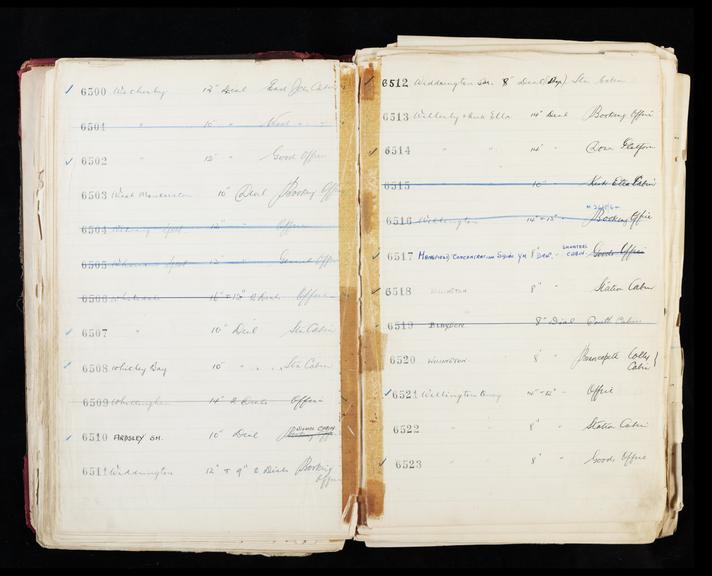 6500 Wetherby 12" Dial East Jcn Cabin
6501 " 10" " West " "
6502 " 12" " Goods Office
6503 West Monkseaton 10" Dial Booking Office
6504 12" " Office
6505 12" " General Office
6506 2 Dials Office
6507 " 10" Dial Stn Cabin
6508 Whitley Bay 10" " Stn Cabin
6509 14" 2 Dials Office
6510 ARDSLEY GH. 10" Dial Booking Office
6511 Waddington 12" & 9" 2 Dials Booking
Office
6512 Widdrington Stn. 8" Dial Stn Cabin
6513 Willerby & Kirk Ella 14" Dial Booking Office
6514 " " 14" " Down Platform
6515 10" " Kirk Ella Cabin
6516 Willington 14" & 12" " Booking Office
6517 MANSFIELD CONCENTRATION SIDINGS 8" DIAL " CABIN Goods Office
6518 WILLINGTON 8" " Station Cabin
6519 BLAYDON 8" Dial South Cabin
6520 WILLINGTON 8" " Brancepeth Colly
Cabin
6521 Wellington Quay 14" & 12" " Office
6522 " " 8" " Station Cabin
6523 " " 8" " Goods Office